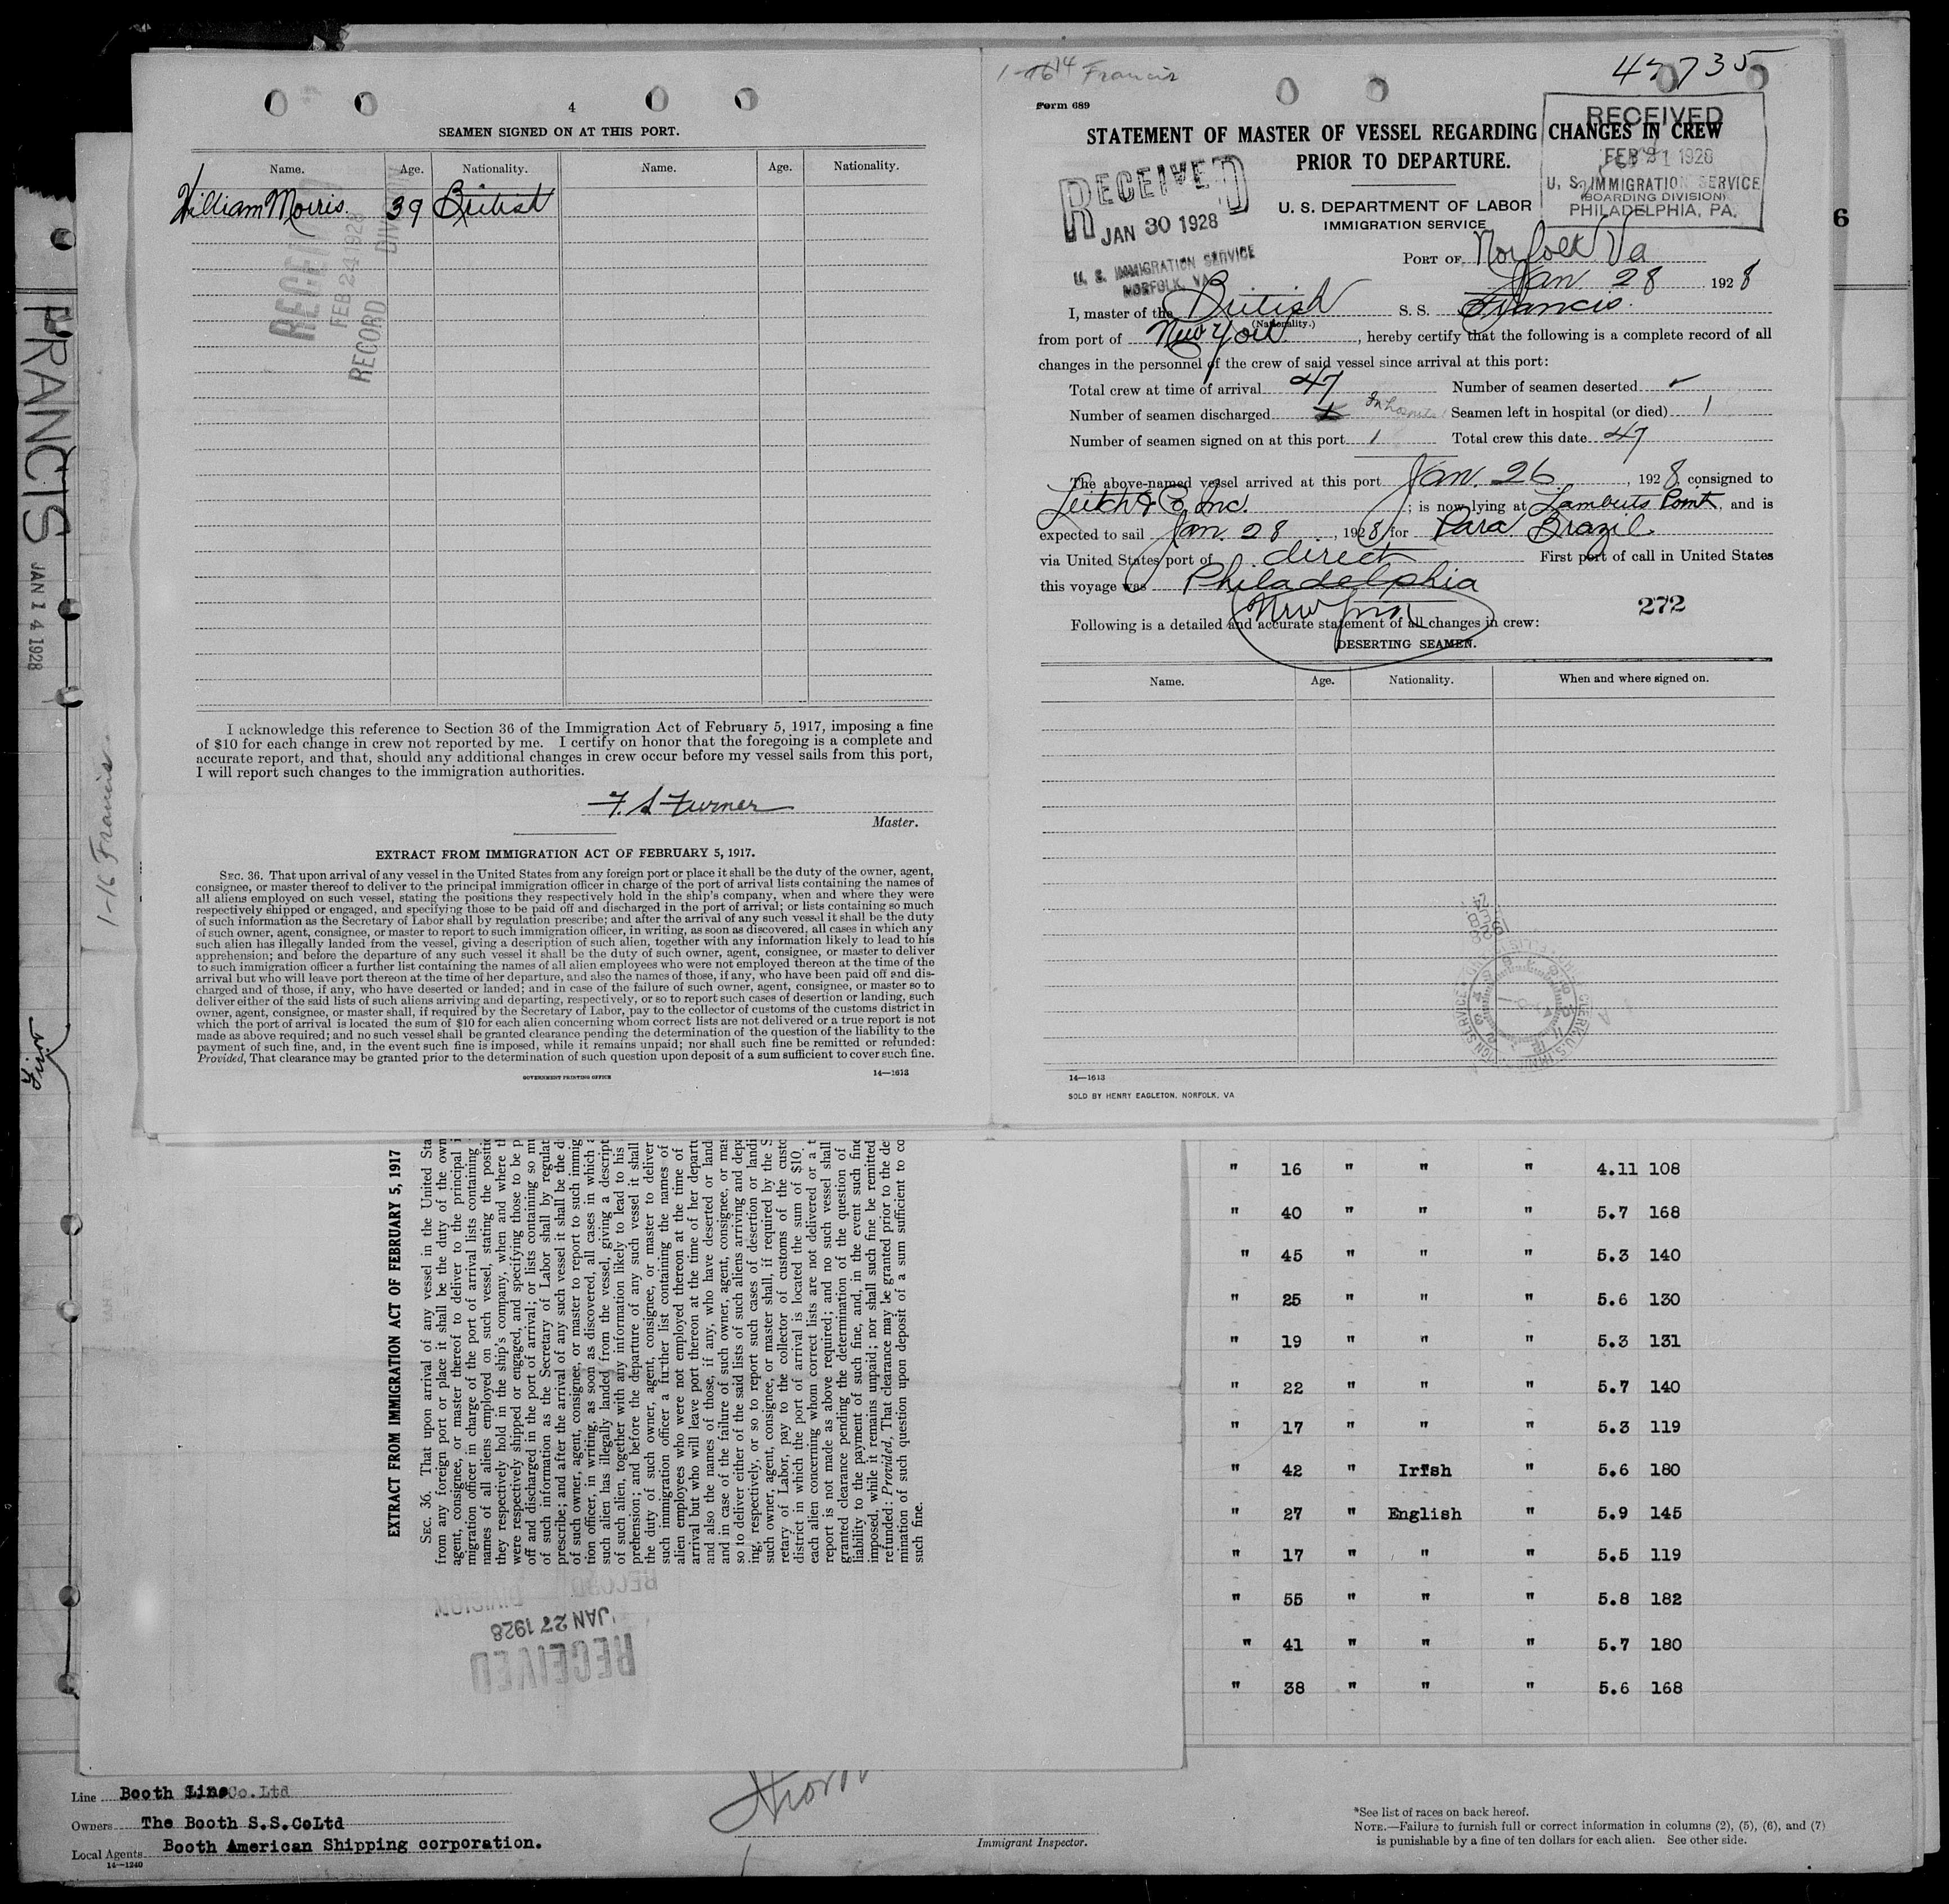 4
SEAMEN SIGNED ON AT THIS PORT.
Name. Age. Nationality. Name. Age. Nationality.
William Morris. 39 British
RECEIVED
FEB 24 1928
RECORD DIVISION
I acknowledge this reference to Section 36 of the Immigration Act of February 5, 1917, imposing a fine
of $10 for each change in crew not reported by me. I certify on honor that the foregoing is a complete and
accurate report, and that, should any additional changes in crew occur before my vessel sails from this port,
I will report such changes to the immigration authorities.
Master.
EXTRACT FROM IMMIGRATION ACT OF FEBRUARY 5, 1917.
SEC. 36. That upon arrival of any vessel in the United States from any foreign port or place it shall be the duty of the owner, agent,
consignee, or master thereof to deliver to the principal immigration officer in charge of the port of arrival lists containing the names of
all aliens employed on such vessel, stating the positions they respectively hold in the ship's company, when and where they were
respectively shipped or engaged, and specifying those to be paid off and discharged in the port of arrival; or lists containing so much
of such information as the Secretary of Labor shall by regulation prescribe; and after the arrival of any such vessel it shall be the duty
of such owner, agent, consignee, or master to report to such immigration officer, in writing, as soon as discovered, all cases in which any
such alien has illegally landed from the vessel, giving a description of such alien, together with any information likely to lead to his
apprehension; and before the departure of any such vessel it shall be the duty of such owner, agent, consignee, or master to deliver
to such immigration officer a further list containing the names of all alien employees who were not employed thereon at the time of the
arrival but who will leave port thereon at the time of her departure, and also the names of those, if any, who have been paid off and dis-
charged and of those, if any, who have deserted or landed; and in case of the failure of such owner, agent, consignee, or master so to
deliver either of the said lists of such aliens arriving and departing, respectively, or so to report such cases of desertion or landing, such
owner, agent, consignee, or master shall, if required by the Secretary of Labor, pay to the collector of customs of the customs district in
which the port of arrival is located the sum of $10 for each alien concerning whom correct lists are not delivered or a true report is not
made as above required; and no such vessel shall be granted clearance pending the determination of the question of the liability to the
payment of such fine, and, in the event such fine is imposed, while it remains unpaid; nor shall such fine be remitted or refunded:
Provided, That clearance may be granted prior to the determination of such question upon deposit of a sum sufficient to cover such fine.
GOVERNMENT PRINTING OFFICE 14—1613
Francis
Form 689
STATEMENT OF MASTER OF VESSEL REGARDING CHANGES IN CREW
PRIOR TO DEPARTURE.
RECEIVED
JAN 30 1928
U. S. IMMIGRATION SERVICE
NORFOLK, VA
RECEIVED
FEB 1 1928
U. S. IMMIGRATION SERVICE
(BOARDING DIVISION)
PHILADELPHIA, PA.
U. S. DEPARTMENT OF LABOR
IMMIGRATION SERVICE
PORT OF Norfolk Va
Jan 28 1928
I, master of the British S. S. Francis.
(Nationality.)
from port of New York, hereby certify that the following is a complete record of all
changes in the personnel of the crew of said vessel since arrival at this port:
Total crew at time of arrival 47 Number of seamen deserted ✓
Number of seamen discharged In hospital Seamen left in hospital (or died) 1
Number of seamen signed on at this port 1 Total crew this date 47
The above-named vessel arrived at this port Jan. 26, 1928, consigned to
Leitch & Co Inc. ; is now lying at Lamberts Point, and is
expected to sail Jan. 28, 1928, for Para Brazil.
via United States port of direct First port of call in United States
this voyage was Philadelphia
New York
272
Following is a detailed and accurate statement of all changes in crew:
DESERTING SEAMEN.
Name. Age. Nationality. When and where signed on.
14—1613
SOLD BY HENRY EAGLETON, NORFOLK, VA
FRANCIS JAN 14 1928
1-16 Francis
6
EXTRACT FROM IMMIGRATION ACT OF FEBRUARY 5, 1917
SEC. 36. That upon arrival of any vessel in the United Sta
from any foreign port or place it shall be the duty of the own
agent, consignee, or master thereof to deliver to the principal i
migration officer in charge of the port of arrival lists containing
names of all aliens employed on such vessel, stating the positi
they respectively hold in the ship's company, when and where t
were respectively shipped or engaged, and specifying those to be p
off and discharged in the port of arrival; or lists containing so m
of such information as the Secretary of Labor shall by regulat
prescribe; and after the arrival of any such vessel it shall be the d
of such owner, agent, consignee, or master to report to such immig
tion officer, in writing, as soon as discovered, all cases in which a
such alien has illegally landed from the vessel, giving a descript
of such alien, together with any information likely to lead to his
prehension; and before the departure of any such vessel it shall
the duty of such owner, agent, consignee, or master to deliver
such immigration officer a further list containing the names of
alien employees who were not employed thereon at the time of
arrival but who will leave port thereon at the time of her departu
and also the names of those, if any, who have deserted or land
and in case of the failure of such owner, agent, consignee, or mas
so to deliver either of the said lists of such aliens arriving and depa
ing, respectively, or so to report such cases of desertion or landi
such owner, agent, consignee, or master shall, if required by the S
retary of Labor, pay to the collector of customs of the custo
district in which the port of arrival is located the sum of $10
each alien concerning whom correct lists are not delivered or a t
report is not made as above required; and no such vessel shall
granted clearance pending the determination of the question of
liability to the payment of such fine, and, in the event such fine
imposed, while it remains unpaid; nor shall such fine be remitted
refunded: Provided, That clearance may be granted prior to the de
mination of such question upon deposit of a sum sufficient to co
such fine.
RECORD DIVISION
JAN 27 1928
RECEIVED
" 16 " " " 4.11 108
" 40 " " " 5.7 168
" 45 " " " 5.3 140
" 25 " " " 5.6 130
" 19 " " " 5.3 131
" 22 " " " 5.7 140
" 17 " " " 5.3 119
" 42 " Irish " 5.6 180
" 27 " English " 5.9 145
" 17 " " " 5.5 119
" 55 " " " 5.8 182
" 41 " " " 5.7 180
" 38 " " " 5.6 168
Line Booth Line Co.Ltd
Owners The Booth S.S.CoLtd
Local Agents Booth American Shipping corporation.
14—1240
Immigrant Inspector.
*See list of races on back hereof.
NOTE.—Failure to furnish full or correct information in columns (2), (5), (6), and (7)
is punishable by a fine of ten dollars for each alien. See other side.